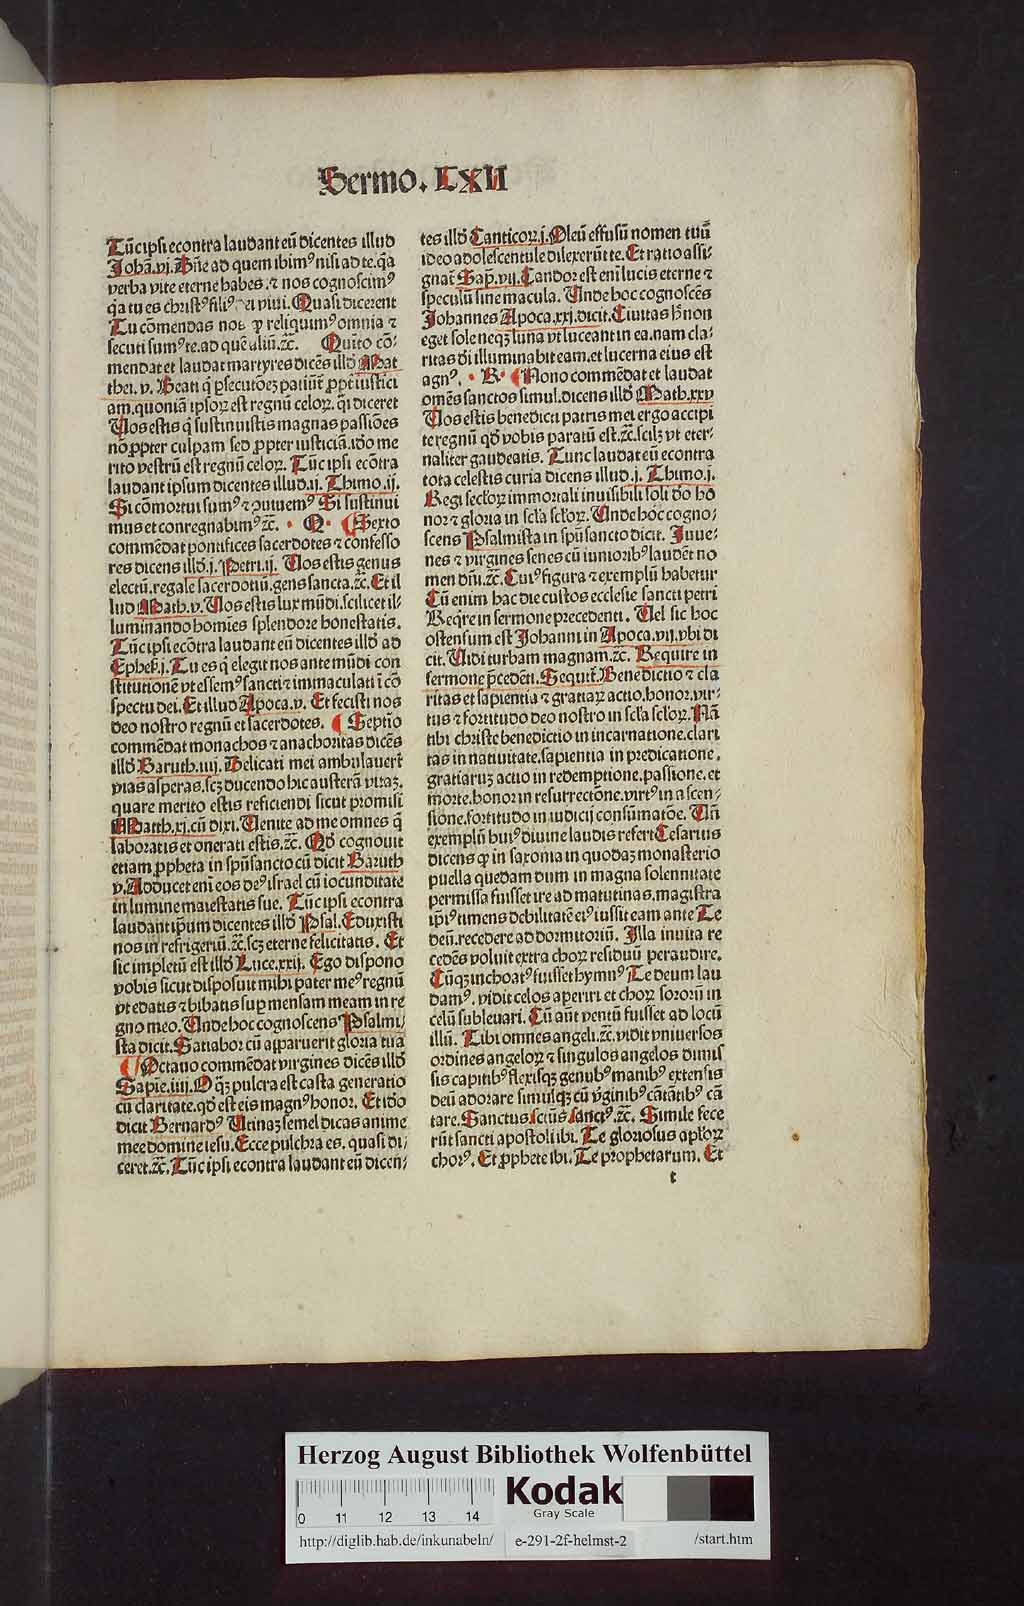 Sermo. LXII
Tūc ipsi econtra laudant eū dicentes illud
Johā. vj. Dn̄e ad quem ibimꝰ nisi ad te. q̄a
verba vite eterne habes. ⁊ nos cognoscimꝰ
q̄a tu es christꝰ filiꝰ dei viui. Quasi dicerent
Tu cōmendas nos ꝙ reliquimꝰ omnia ⁊
secuti sumꝰ te. ad quē aliū. ⁊c̄. Quīto cō⸗
mendat et laudat martyres dicēs illd̄ Mat
thei. v. Beati q̄ ꝑsecutōeꝫ patiūt̄ ꝓpt̄ iustici
am. quoniā ipsoꝝ est regnū celoꝝ. q̄si diceret
Uos estis q̄ sustinuistis magnas passiōes
nō ꝓpter culpam sed ꝓpter iusticiā. iđo me
rito vestrū est regnū celoꝝ. Tūc ipsi ecōtra
laudant ipsum dicentes illud. ij. Thimo. ij.
Si cōmortui sumꝰ ⁊ ꝯuiuemꝰ Si sustinui
mus et conregnabimꝰ ⁊c̄. · Q · ¶ Sexto
commēdat pontifices sacerdotes ⁊ confesso
res dicens illđ. j. Petri. ij. Uos estis genus
electū. regale sacerdotiū. gens sancta. ⁊c̄. Et il
lud Math. v. Uos estis lux mūdi. scilicet il⸗
luminando homīes splendore honestatis.
Tūc ipsi ecōtra laudant eū dicentes illđ ad
Ephes. j. Tu es q̄ elegit nos ante mūdi con
stitutionē vt essemꝰ sancti ⁊ immaculati ī cō
spectu dei. Et illud Apoca. v. Et fecisti nos
deo nostro regnū et sacerdotes. ¶ Septīo
commēdat monachos ⁊ anachoritas dicēs
illđ Baruth. iiij. Delicati mei ambulauerūt
vias asperas. scꝫ ducendo hic austerā vitaꝫ.
quare merito estis reficiendi sicut promisi
Matth. xj. cū dixi. Uenite ad me omnes q̄
laboratis et onerati estis. ⁊c̄. Qđ cognouit
etiam ꝓpheta in spū sancto cū dicit Baruth
v. Adducet eni eos deꝰ israel cū iocunditate
in lumine maiestatis sue. Tūc ipsi econtra
laudant ip̄um dicentes illđ Psal. Eduxisti
nos in refrigeriū. ⁊c̄. scꝫ eterne felicitatis. Et
sic impletū est illđ Luce. xxij. Ego dispono
vobis sicut disposuit mihi pater meꝰ regnū
vt edatis ⁊ bibatis suꝑ mensam meam in re
gno meo. Unde hoc cognoscens Psalmi⸗
sta dicit. Satiabor cū apparuerit gloria tua
¶ Octauo commēdat virgines dicēs illđ
Sapīe. iiij. O q̄ꝫ pulcra est casta generatio
cū claritate. qđ est eis magnꝰ honor. Et iđo
dicit Bernardꝰ Utinaꝫ semel dicas anime
mee domine iesu. Ecce pulchra es. quasi di⸗
ceret. ⁊c̄. Tūc ipsi econtra laudant eū dicen⸗
tes illđ Canticoꝝ. j. Oleū effusū nomen tuū
ideo adolescentule dilexerūt te. Et ratio assi⸗
gnat̄ Sap̄. vij. Candor est eni lucis eterne ⁊
speculū sine macula. Unde hoc cognoscēs
Johannes Apoca. xxj. dicit. Ciuitas hꝫ non
eget sole neqꝫ luna vt luceant in ea. nam cla⸗
ritas dei illuminabit eam. et lucerna eius est
agnꝰ. · R · ¶ Nono commēdat et laudat
omēs sanctos simul. dicens illđ Math. xxv
Uos estis benedicti patris mei ergo accipi
te regnū qđ vobis paratū est. ⁊c̄. scilꝫ vt eter⸗
naliter gaudeatis. Tunc laudat eū econtra
tota celestis curia dicens illud. j. Thimo. j.
Regi secl̓oꝝ immortali inuisibili soli đo hō
nor ⁊ gloria in scl̓a scl̓oꝝ. Unde hoc cogno⸗
scens Psalmista in spū sancto dicit. Iuue⸗
nes ⁊ virgines senes cū iunioribꝰ laudēt no
men dn̄i. ⁊c̄. Cuiꝰ figura ⁊ exemplū habetur
Cū enim hac die custos ecclesie sancti petri
Reqr̄e in sermone precedenti. Uel sic hoc
ostensum est Johanni in Apoca. vij. vbi di
cit. Uidi turbam magnam. ⁊c̄. Require in
sermone p̄cedēti. Sequit̄. Benedictio ⁊ cla
ritas et sapientia ⁊ gratiaꝝ actio. honor. vir⸗
tus ⁊ fortitudo deo nostro in scl̓a scl̓oꝝ. Nā
tibi christe benedictio in incarnatione. clari
tas in natiuitate. sapientia in predicatione.
gratiaruꝫ actio in redemptione. passione. et
morte. honor in resurrectōne. virtꝰ in ascen⸗
sione. fortitudo in iudicij consūmatōe. Un̄
exemplū huiꝰ diuine laudis refert Cesarius
dicens ꝙ in saxonia in quodaꝫ monasterio
puella quedam dum in magna solennitate
permissa fuisset ire ad matutinas. magistra
ip̄iꝰ timens debilitatē eiꝰ iussit eam ante Te
deū. recedere ad dormitoriū. Illa inuita re
cedēs voluit extra choꝝ residuū peraudire.
Cūqꝫ inchoatꝰ fuisset hymnꝰ Te deum lau
damꝰ. vidit celos aperiri et choꝝ sororū in
celū subleuari. Cū aūt ventū fuisset ad locū
illū. Tibi omnes angeli. ⁊c̄. vidit vniuersos
ordines angeloꝝ ⁊ singulos angelos dimis
sis capitibꝰ flexisqꝫ genubꝰ manibꝰ extensis
deū adorare simulqꝫ cū v̓ginibꝰ cātātibꝰ cā
tare. Sanctus sctūs sanctꝰ. ⁊c̄. Simile fece
rūt sancti apostoli ibi. Te gloriosus apl̓oꝝ
chorꝰ. Et ꝓphete ibi. Te prophetarum. Et
t
Herzog August Bibliothek Wolfenbüttel
0 11 12 13 14
Kodak
Gray Scale
http://diglib.hab.de/inkunabeln/ e-291-2f-helmst-2 /start.htm